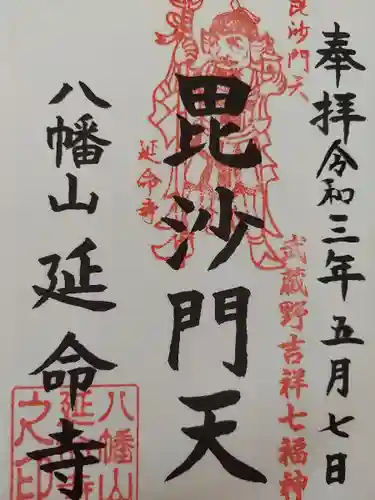 奉拝令和三年五月七日
毘沙門天
武蔵野吉祥七福神
毘沙門天
延命寺
八幡山延命寺
八幡山
延命寺
之印